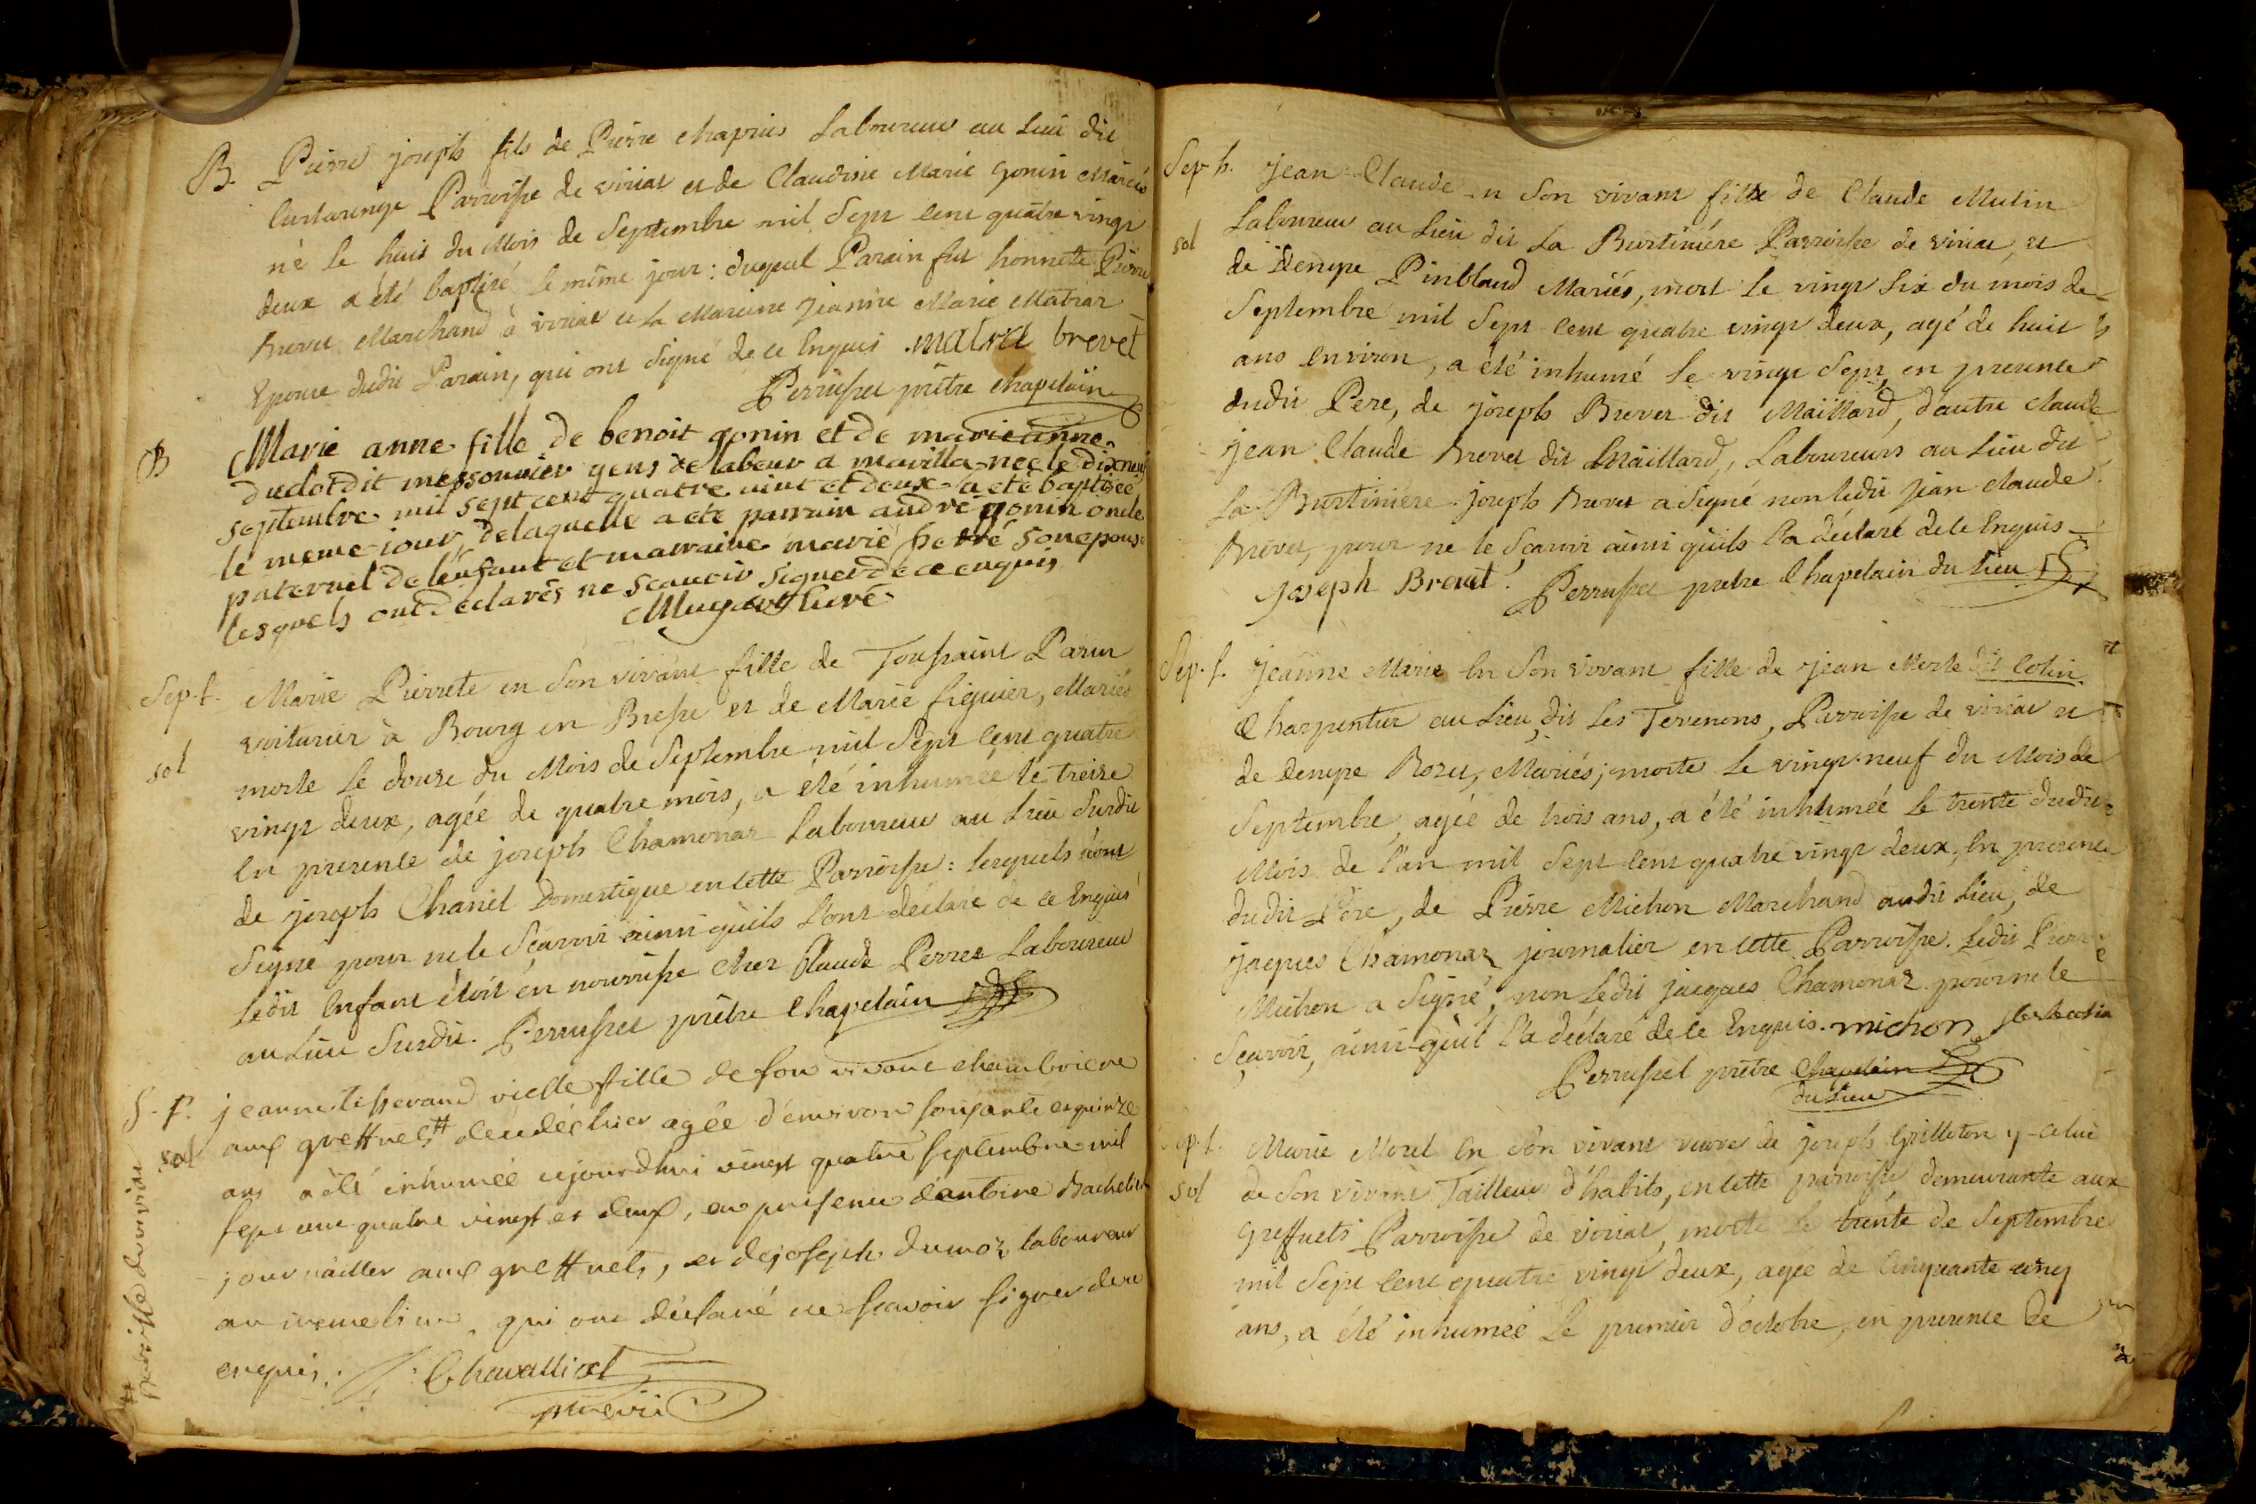 B. Pierre joseph fils de Pierre chapuis Laboureur au Lieu dit
Curtarenge Parroisse de viriat et de Claudine Marie gonin Mariés
né le huit du Mois de Septembre mil Sept Cent quatre vingt
deux a été baptisé le même jour: duquel Parain fut honnete Pierre
Brevet Marchand à viriat et la Maraine Jeanne Marie Matrat
Epouse dudit Parain, qui ont Signé de ce Enquis matra brevet
Perrusset prêtre chapelain
B Marie anne fille de benoit gonin et de marieanne
duclot dit messonnier gens de labeur a mavilla nee le dixneuf
septembre mil sept cent quatre vint et deux a eté baptisée
le meme iour delaquelle a eté parrain andré gonin oncle
paternel de lenfant et marraine marie son epouse
lesquels ont declarés ne scauoir signer de ce enquis
curé
Sep. f. Marie Pierrete en Son vivant fille de Toussaint Parin
voiturier à Bourg en Bresse et de Marie figuier, Mariés
sol morte le douze du Mois de Septembre mil Sept Cent quatre
vingt deux, agée de quatre mois, a été inhumée le treize
En presence de joseph Chamonar Laboureur au Lieu Surdit
de joseph Chanel Domestique en cette Parroisse: lesquels n'ont
Signé pour ne le Sçavoir ainsi qu'ils l'ont déclaré de ce Enquis
Ledit Enfant étoit en nourrisse chez Claude Perret Laboureur
au Lieu Surdit. Perrusset prêtre Chapelain
S. f. jeanne tisserand vielle fille de son vivant chambriere
aux greffuets # agée d'environ soixante et quinze
sol ans a été inhumée cejourdhui vingt quatre septembre mil
sept cent quatre vingt et deux, en presence d'antoine Bachelier
journailler aux greffuets, et de joseph dumoz laboureur
au meme lieu, qui ont déclaré ne scavoir signer de ce
enquis. Chevallier
# parroisse de viriat
Sep. h. Jean-Claude en Son vivant fils de Claude Mutin
sol Laboureur au Lieu dit La Burtiniére Parroisse de viriat, et
de Denyse Pinbland Mariés, mort le vingt Six du mois de
Septembre mil Sept Cent quatre vingt deux, agé de huit
ans Environ, a été inhumé le vingt Sept, en presence
dudit Pere, de joseph Brevet dit Maillard, d'autre claude
Jean Claude Brevet dit Maillard, Laboureurs au Lieu dit
La Burtiniére. joseph Brevet a Signé non ledit Jean claude
Brevet, pour ne le Sçavoir ainsi qu'ils l'a déclaré de ce Enquis
Joseph Brevet. Perrusset prêtre Chapelain du Lieu
Sep. f. Jeanne Marie En Son vivant fille de Jean Merle dit Cotin
Charpentier au Lieu dit Les Terenons, Parroisse de viriat et
de Denyse Rozet, Mariés; morte le vingt-neuf du Mois de
Septembre agée de trois ans, a été inhumée le trente dudit
Mois de l'an mil Sept Cent quatre vingt deux, En presence
dudit Pere, de Pierre Michon Marchand audit Lieu, de
jacques Chamonar journalier en cette Parroisse. Ledit Pierre
Michon a Signé, non Ledit jacques Chamonar pour ne le
Sçavoir, ainsi-qu'il l'a déclaré de ce Enquis. michon
Perrusset prêtre Chapelain
du Lieu
Sep. f. Marie Morel En Son vivant veuve de joseph Grilleton y-celui
sol de Son vivant Tailleur d'habits, en cette paroisse demeurante aux
greffuets Parroisse de viriat, morte le trente de Septembre
mil Sept Cent quatre vingt deux, agée de Cinquante cinq
ans, a été inhumée le premier d'octobre, en presence de